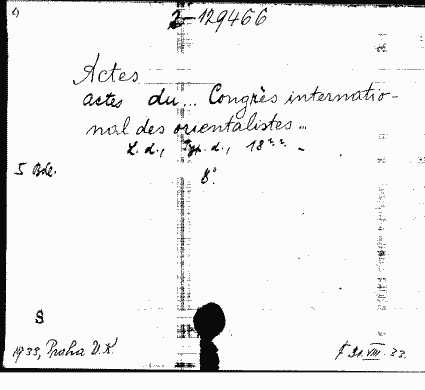 2-129466
Actes
actes du... Congrès internatio-
nal des orientalistes...
L. d., Typ. d., 18??. -
5 Bde. 8°.
S
1933, Praha V.K. 21.VIII.33.